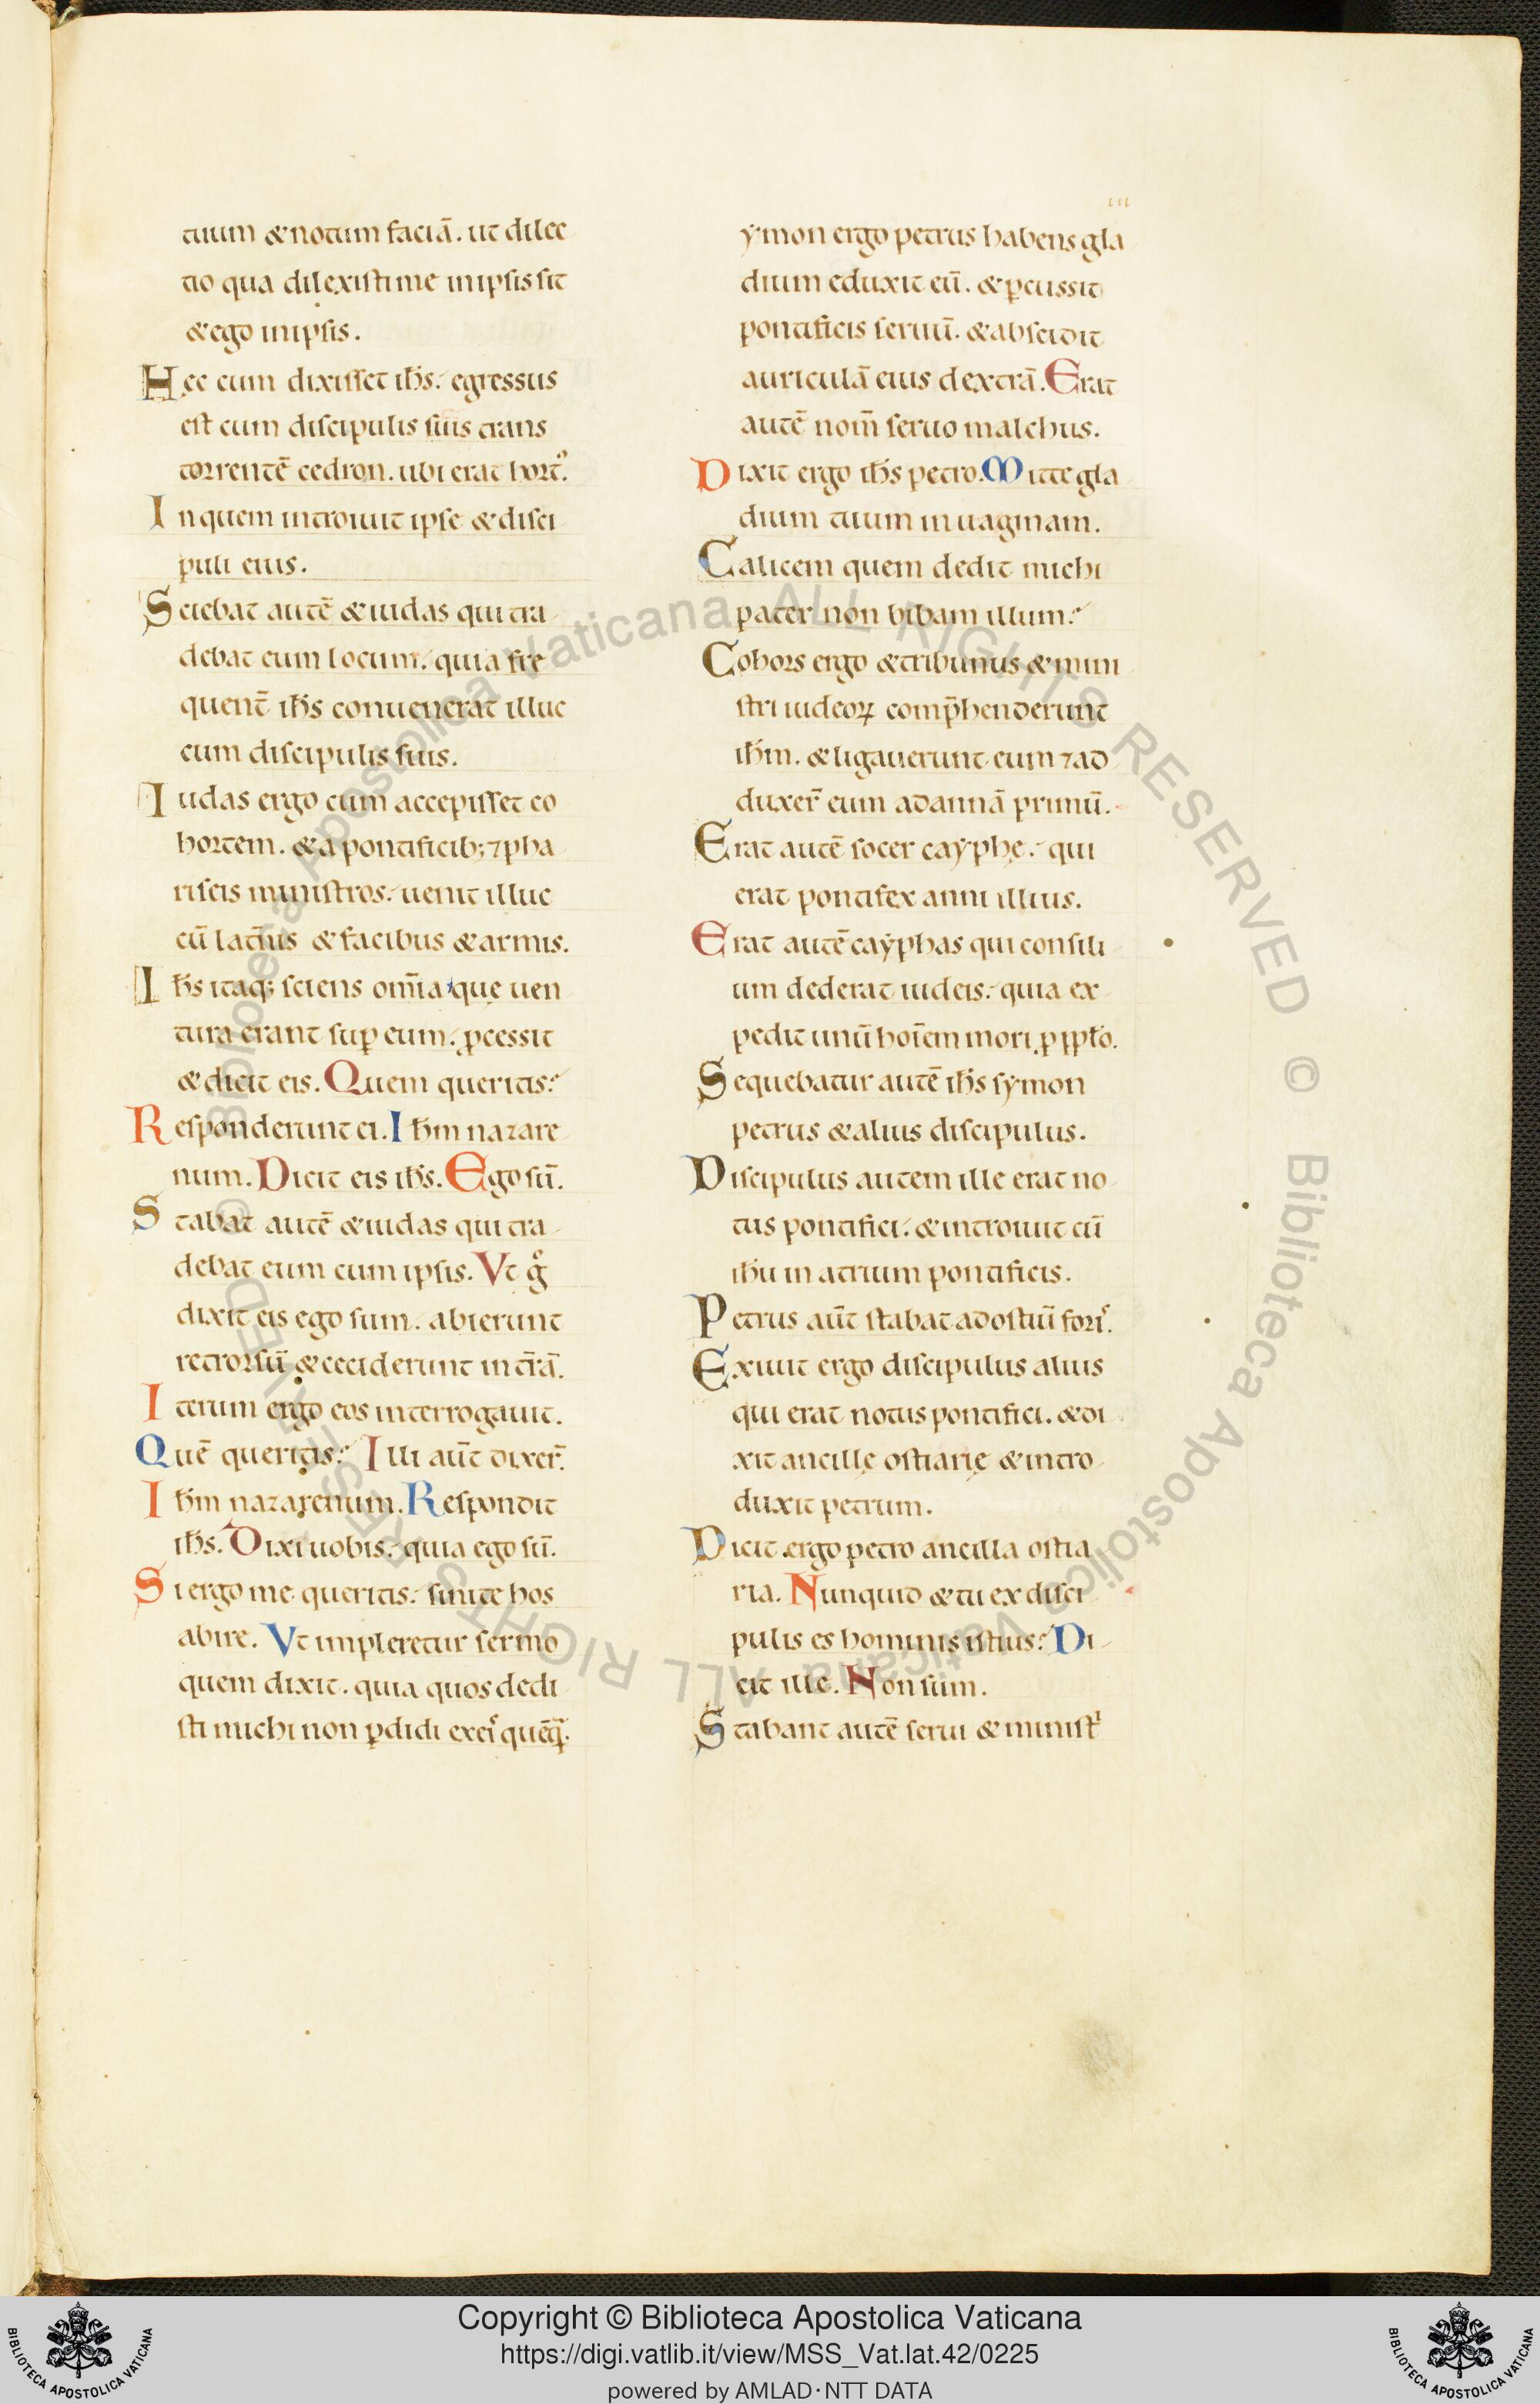 tuum & notum faciā. ut dilec
tio qua dilexisti me in ipsis sit
& ego in ipsis.
Hęc cum dixisset ih̄s. egressus
est cum discipulis suis trans
torrentē cedron. ubi erat hort᾽.
In quem introiuit ipse & disci
puli eius.
Sciebat autē & iudas qui tra
debat eum locum. quia fre
quent̄ ih̄s conuenerat illuc
cum discipulis suis.
Iudas ergo cum accepisset co
hortem. & a pontificib; ⁊ pha
riseis ministros. uenit illuc
cū lat̄nis & facibus & armis.
Ih̄s itaq; sciens om̄ia que uen
tura erant sup̱ eum. ꝓcessit
& dicit eis. Quem queritis?
Responderunt ei. Ih̄m nazare
num. Dicit eis ih̄s. Ego sū.
Stabat autē & iudas qui tra
debat eum cum ipsis. Vt gͦ
dixit eis ego sum. abierunt
retrorsū & ceciderunt in t̄rā.
Iterum ergo eos interrogauit.
Quē queritis? Illi aūt dixer̄.
Ih̄m nazarenum. Respondit
ih̄s. Dixi uobis. quia ego sū.
Si ergo me queritis. sinite hos
abire. Vt impleretur sermo
quem dixit. quia quos dedi
sti michi non ꝑdidi ex eiˢ quēq̄.
iii
ymon ergo petrus habens gla
dium eduxit eū. & ꝑcussit
pontificis seruū. & abscidit
auriculā eius dextrā. Erat
autē nom̄ seruo malchus.
Dixit ergo ih̄s petro. Mitte gla
dium tuum in uaginam.
Calicem quem dedit michi
pater non bibam illum?
Cohors ergo & tribunus & mini
stri iudeoꝝ comp̄henderunt
ih̄m. & ligauerunt eum ⁊ ad
duxer̄ eum ad annā primū.
Erat autē socer cayphę. qui
erat pontifex anni illius.
Erat autē cayphas qui consili
um dederat iudeis. quia ex
pedit unū hoīem mori ꝓ pp̄lo.
Sequebatur autē ih̄s symon
petrus & alius discipulus.
Discipulus autem ille erat no
tus pontifici. & introiuit cū
ih̄u in atrium pontificis.
Petrus aūt stabat ad ostiū foriˢ.
Exiuit ergo discipulus alius
qui erat notus pontifici. & di
xit ancillę ostiarię & intro
duxit petrum.
Dicit ergo petro ancilla ostia
ria. Nunquid & tu ex disci
pulis es hominis istius? Di
cit ille. Non sum.
Stabant autē serui & ministⁱ
Copyright © Biblioteca Apostolica Vaticana
https://digi.vatlib.it/view/MSS_Vat.lat.42/0225
powered by AMLAD·NTT DATA
BIBLIOTECA APOSTOLICA VATICANA
BIBLIOTECA APOSTOLICA VATICANA
© Biblioteca Apostolica Vaticana ALL RIGHTS RESERVED © Biblioteca Apostolica Vaticana ALL RIGHTS RESERVED